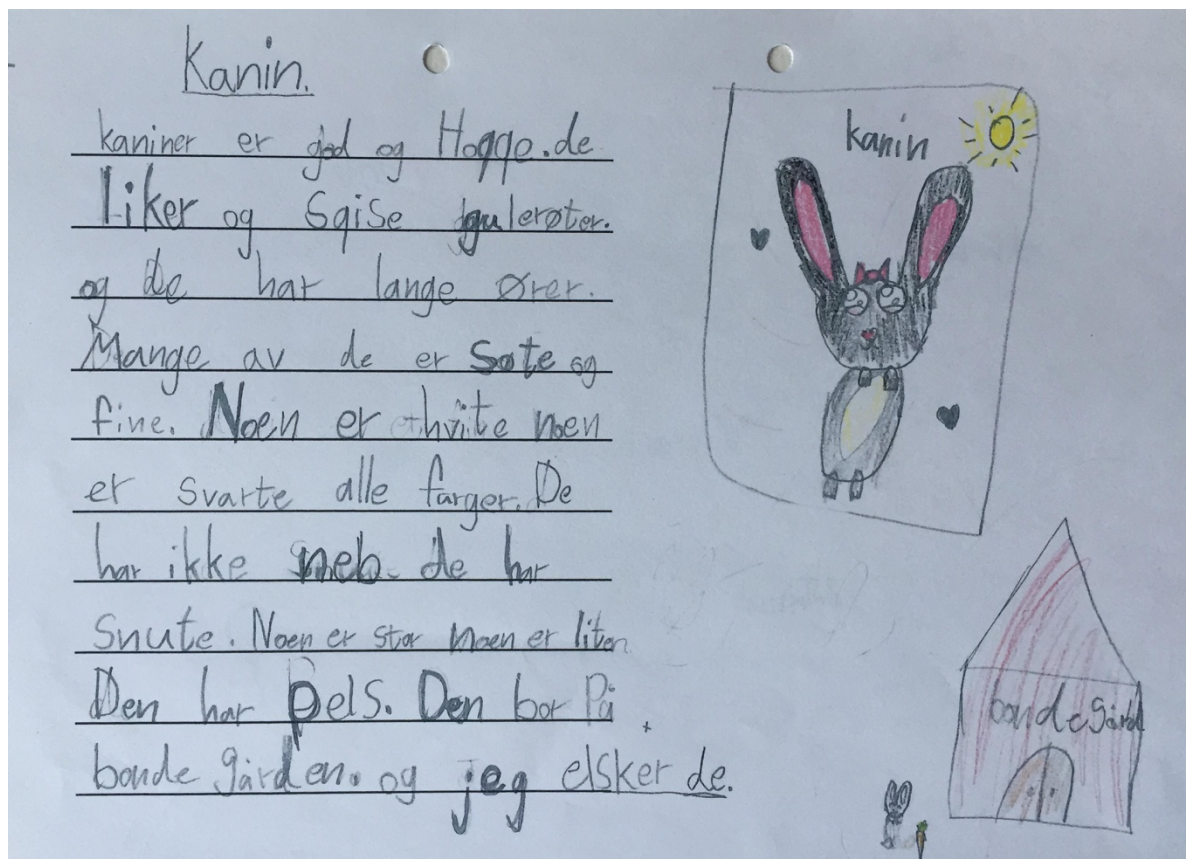 Kanin.
kaniner er god og Hogge.de
liker og Sqise gulerøter.
og De har lange ører.
Mange av de er Søte og
fine. Noen er hvite noen
er svarte alle farger. De
har ikke neb. de har
Snute. Noen er stor noen er liten
Den har pels. Den bor På
bonde gården. og jeg elsker de.
kanin
bonde gård